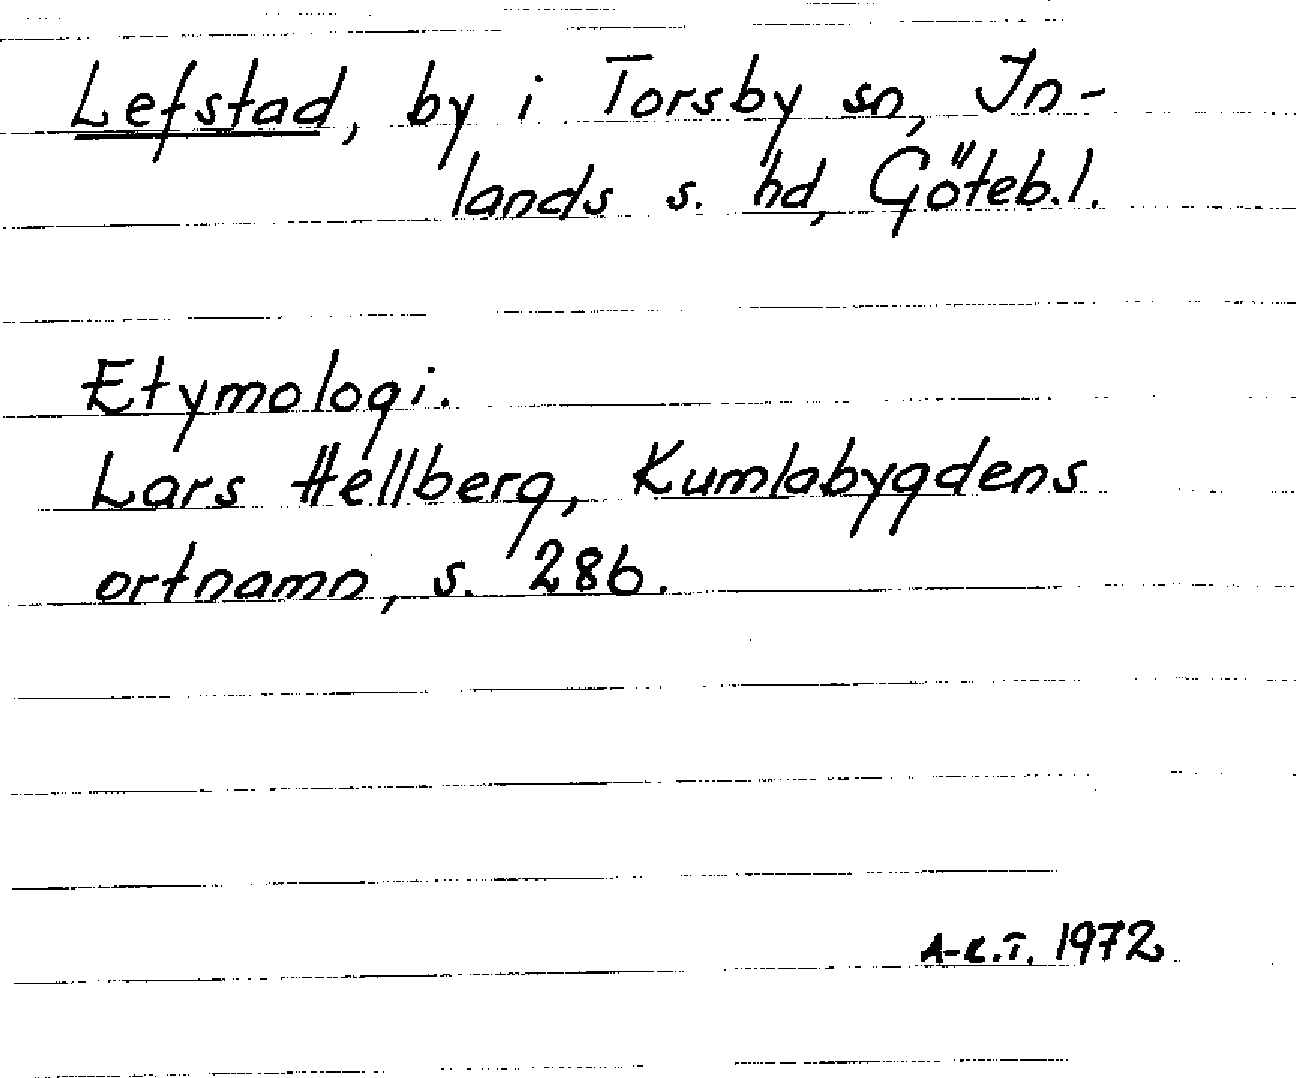 Lefstad, by i Torsby sn, In-
lands s. hd, Göteb.l.
Etymologi.
Lars Hellberg, Kumlabygdens
ortnamn, s. 286.
A-C.T. 1972